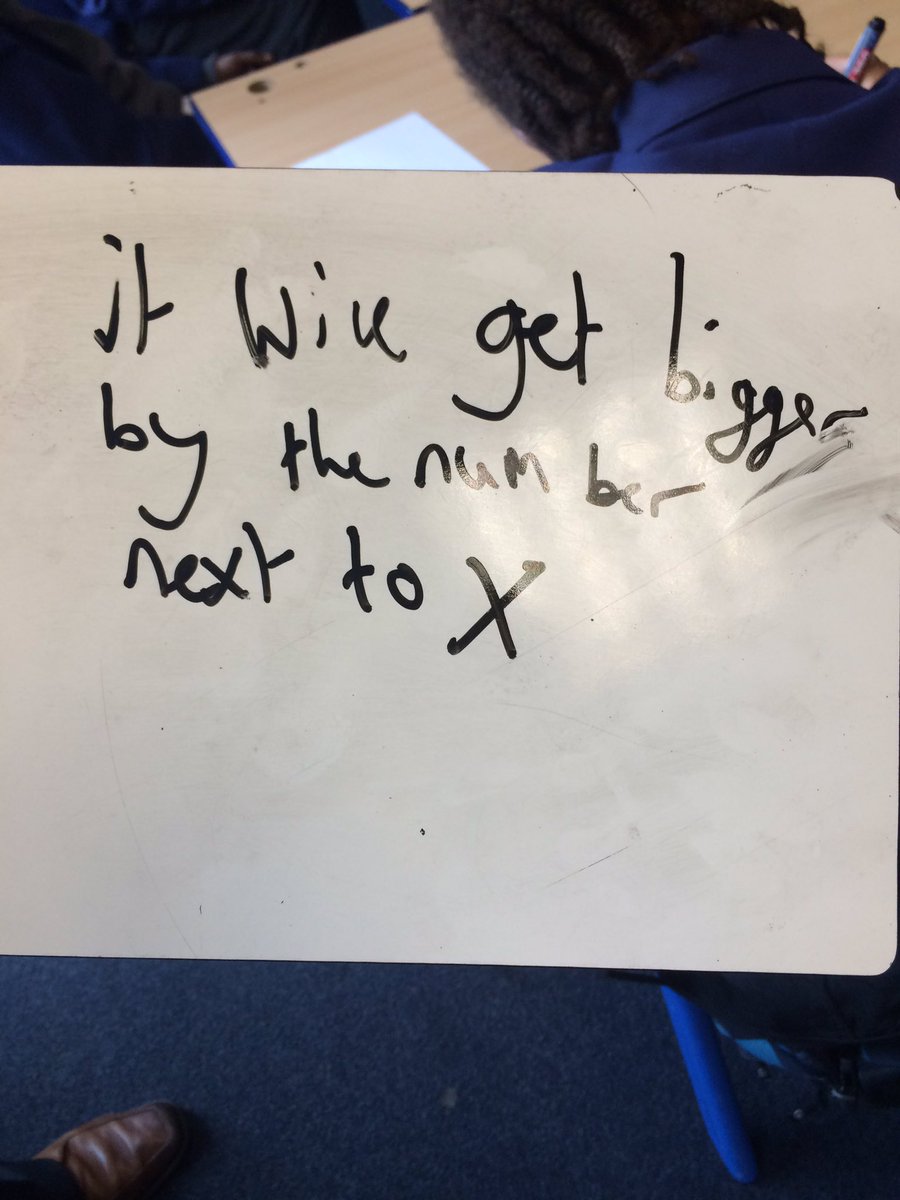 it will get bigger
by the number
next to X